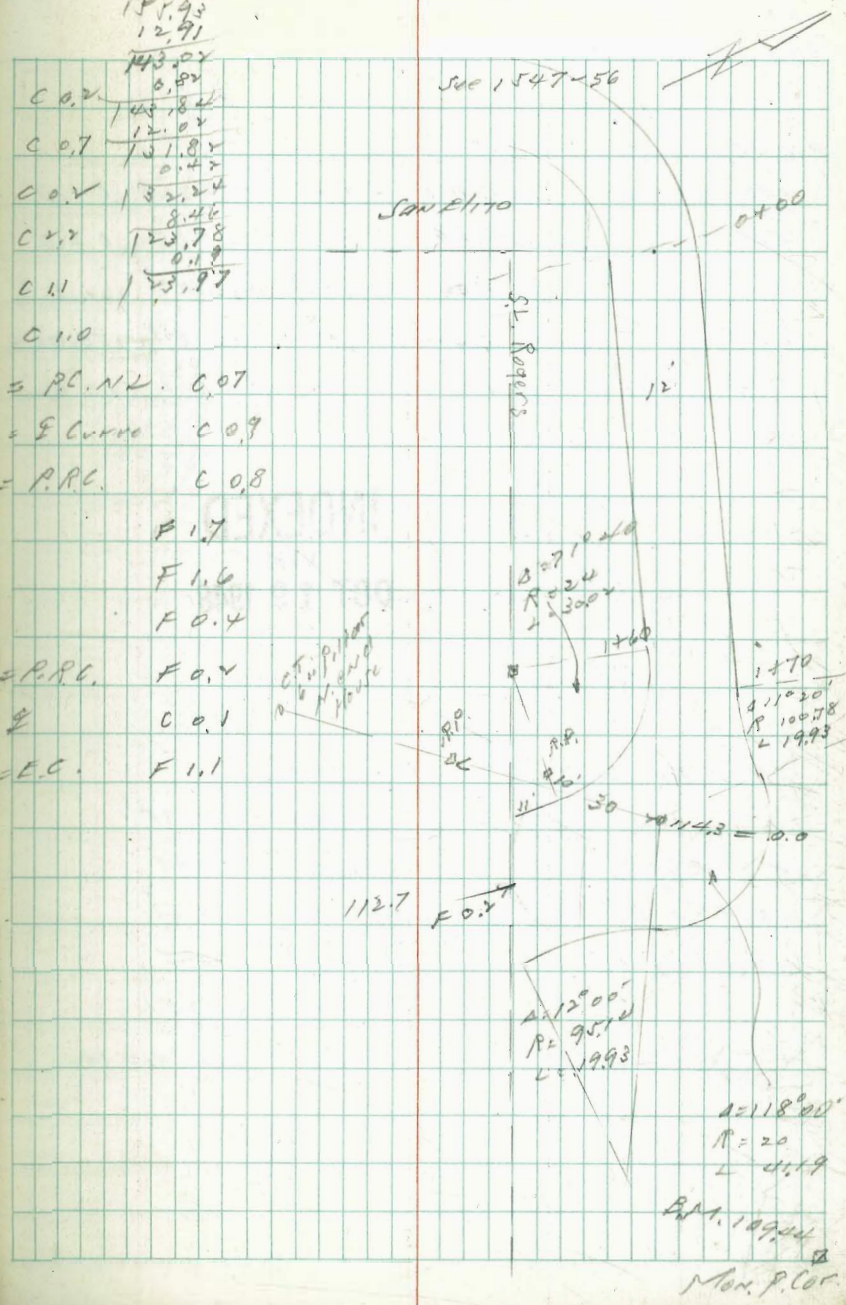 155.93
12.91
143.02
0.82
C 0.2 143.84
12.02
C 0.7 131.82
0.42
C 0.2 132.24
8.46
C 2.2 123.78
0.19
C 1.1 123.97
C 1.0
= P.C. N.L. C 0.7
= ℄ Curve C 0.9
= P.R.C. C 0.8
F 1.7
F 1.6
F 0.4
= P.R.C. F 0.2
℄ C 0.1
= E.C. F 1.1
See 1547-56
San Elijo
0+00
S.L. Rogers
12'
Δ = 71° 40
R = 24
L = 30.02
1+60
1+70
Δ 11° 20'
R 100.78
L 19.93
N. end of
House
R.P.
R.P.
10'
11'
30
114.3 = 0.0
112.7 F 0.2
Δ = 12° 00'
R = 95.14
L = 19.93
Δ = 118° 00'
R = 20
L 41.19
B.M. 109.44
Mon. P. Cor.